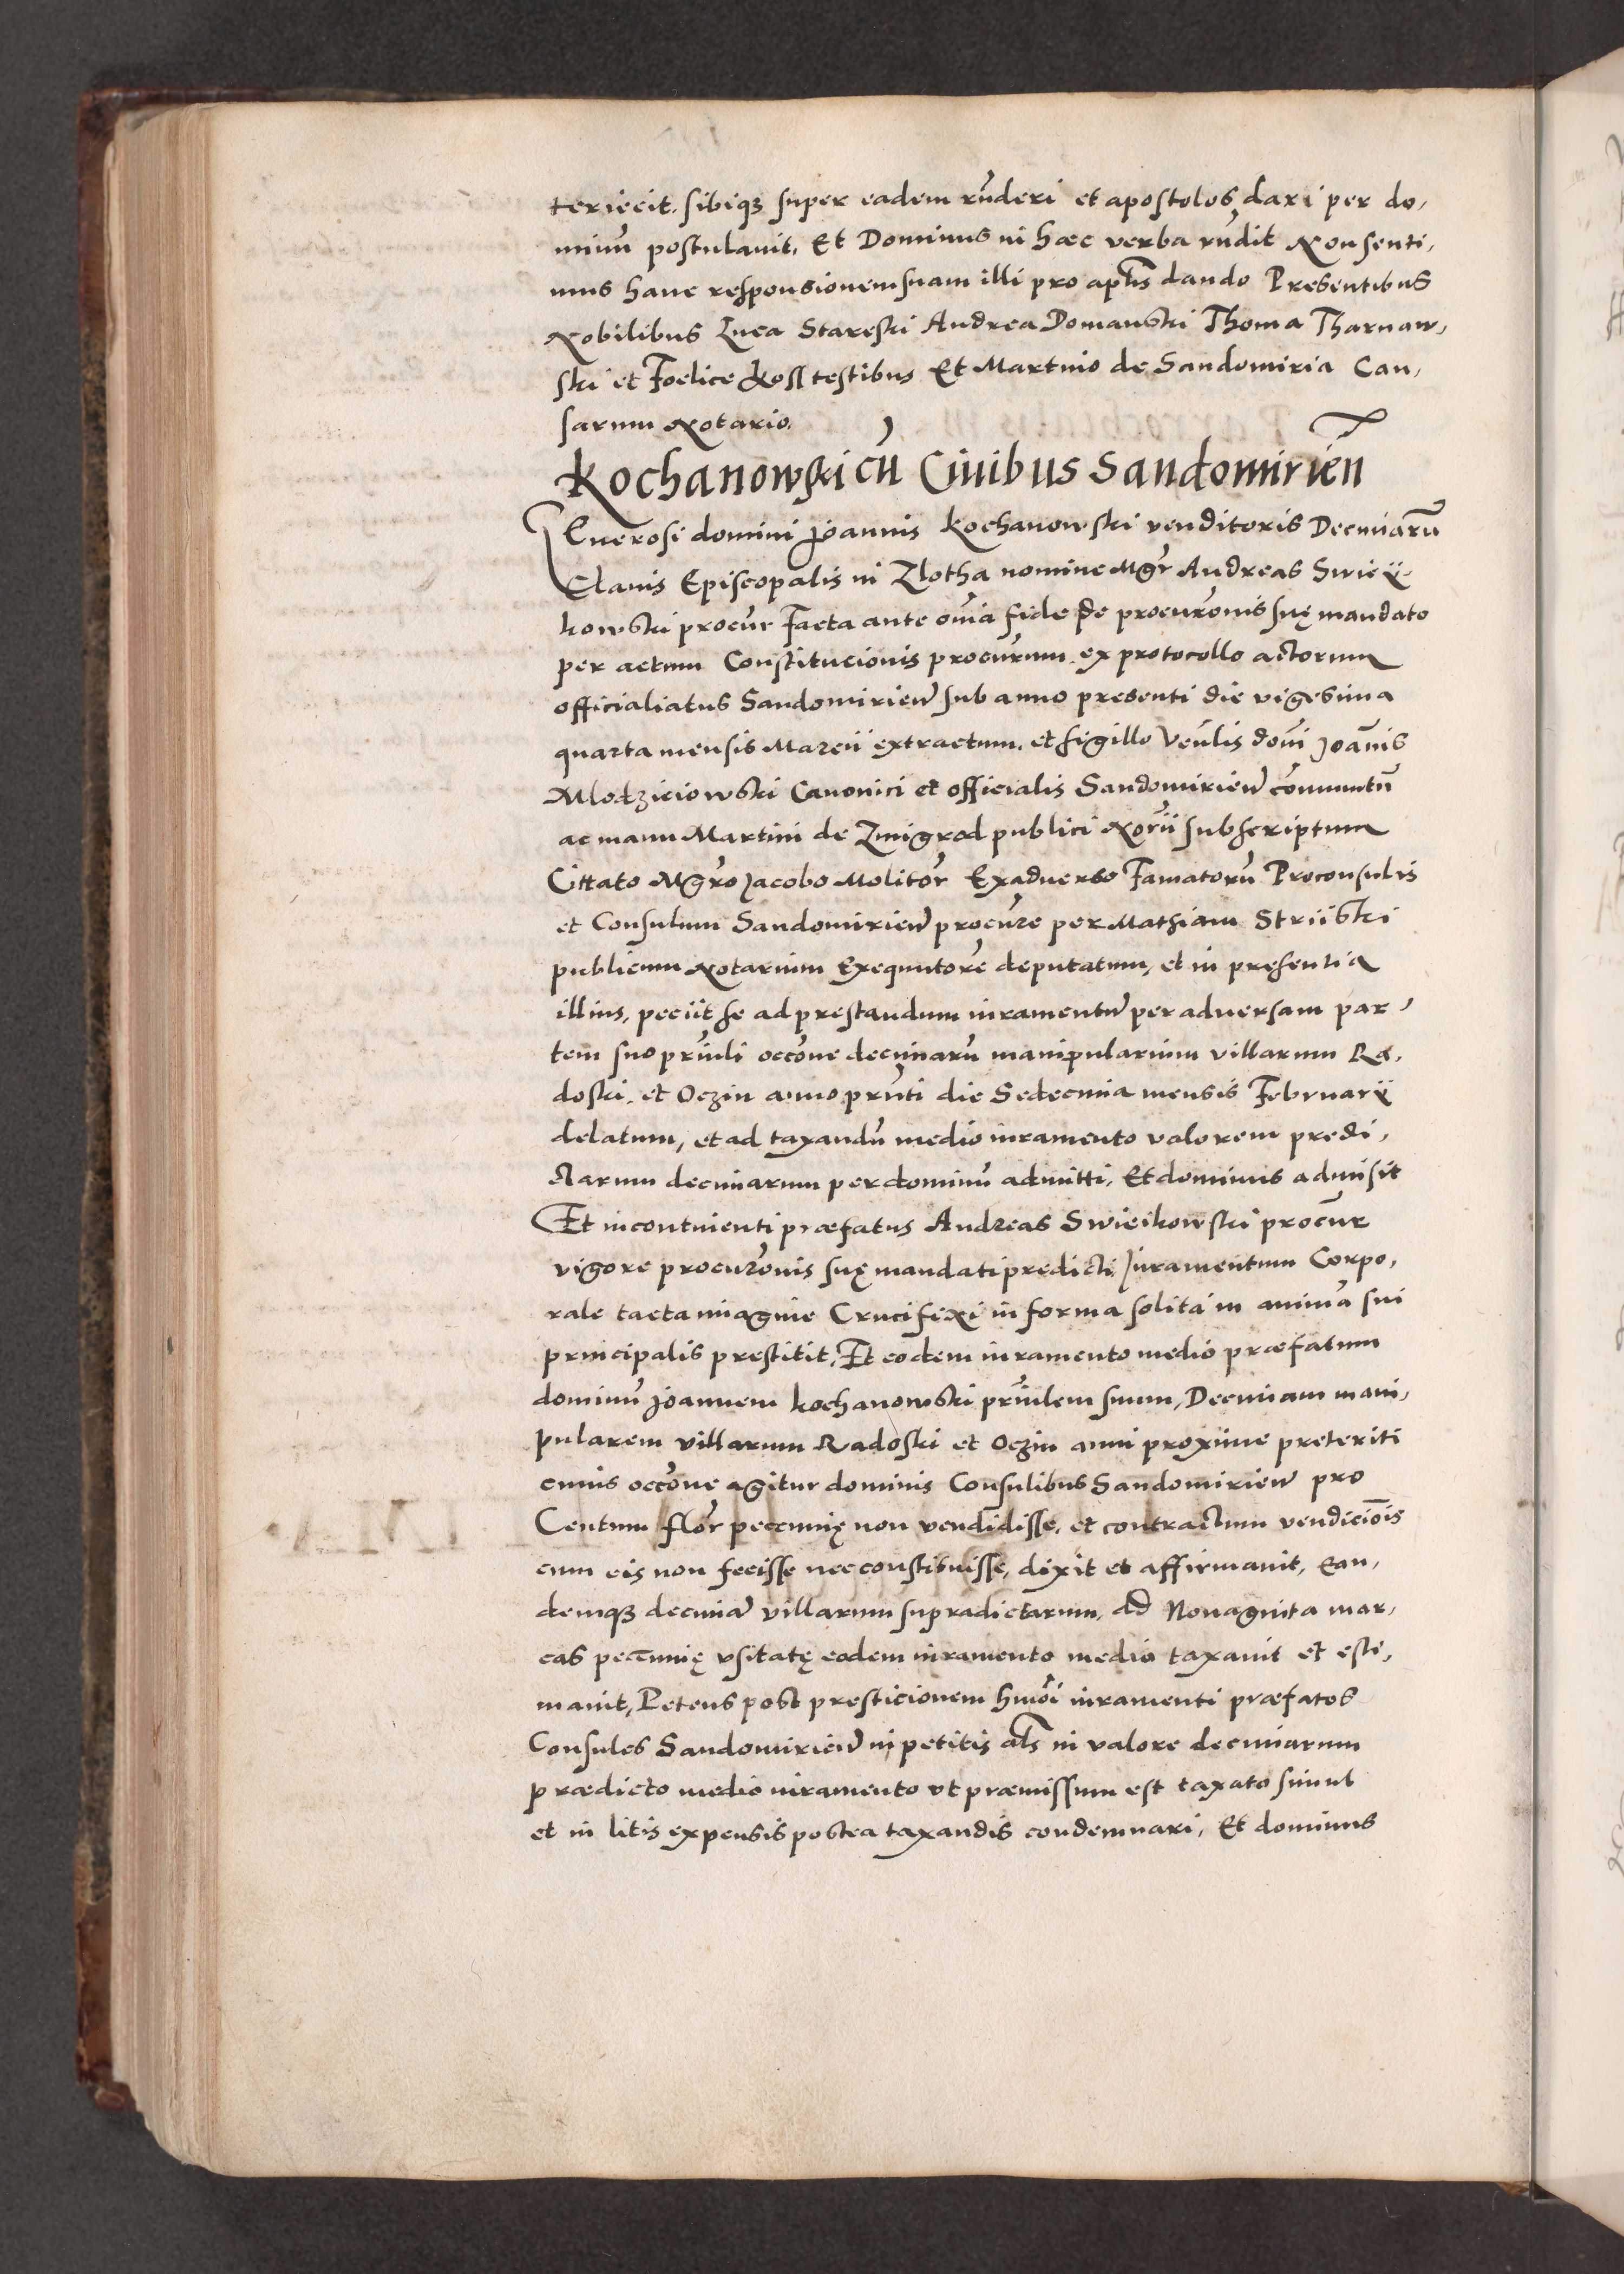 teriecit. sibiq3 super eadem rn̄deri et apostolos dari per do,
minū postulavit, Et Dominus in haec verba rn̄dit Non senti,
mus hanc responsionem suam illi pro apl̄is dando Presentibus
Nobilibus Luca Stareski Andrea Domanski Thoma Tharnaw,
ski et Foelice Koss testibus Et Martino de Sandomiria Cau,
sarum Notario.
Kochanowski cū Civibus Sandomirien̄
Generosi domini Joannis Kochanowski venditoris Decimarū
Clavis Episcopalis in Zlotha nomine Mgr̄ Andreas Swiey-
kowski procur̄ Facta ante om̄ia fide de procurōnis suę mandato
per actum Constitucionis procurum ex protocollo actorum
officialiatus Sandomirien̄ sub anno presenti die vigesima
quarta mensis Marcii extractum, et sigillo Ven̄lis dom̄i Joān̄is
Mlodzieiowski Canonici et officialis Sandomirien̄ cōmunitū
ac manu Martini de Zmigrod publici Nor̄ii subscriptum
Cittato Mgr̄o Jacobo Molitor̄ Exadverso Famatorū Proconsulis
et Consulum Sandomirien̄ procur̄e per Mathiam Striiski
publicum Notarium Exequutorē deputatum, et in presentia
illius, peciit se ad prestandum iuramentū per adversam par,
tem suo prin̄li occōne decimarū manipularium villarum Ra,
doski, et Oczin anno prn̄ti die Sedecima mensis Februarÿ
delatum, et ad taxandū medio iuramento valorem predi,
ctarum decimarum per dominū admitti, Et dominus admisit
Et incontinenti praefatus Andreas Swieikowski procur̄
vigore procurōnis suę mandati predicti, Juramentum Corpo,
rale tacta imagine Crucifixi in forma solita in anima sui
principalis prestitit, Et eodem iuramento medio praefatum
dominū Joannem Kochanowski prin̄lem suum, Decimam mani,
pularem villarum Radoski et Oczin anni proxime preteriti
cuius occōne agitur dominis Consulibus Sandomirien̄ pro
Centum flor̄ peccunię non vendidisse, et contractum vendiciōis
cum eis non fecisse nec constituisse, dixit et affirmavit, Ean,
demq3 decimā villarum supradictarum, ad Nonaginta mar,
cas peccunię usitatę eodem iuramento medio taxavit et esti,
mavit, Petens post presticionem hmōi iuramenti praefatos
Consules Sandomirien̄ in petitis al̄s in valore decimarum
praedicto medio iuramento ut praemissum est taxato simul
et in litis expensis postea taxandis condemnari, Et dominus